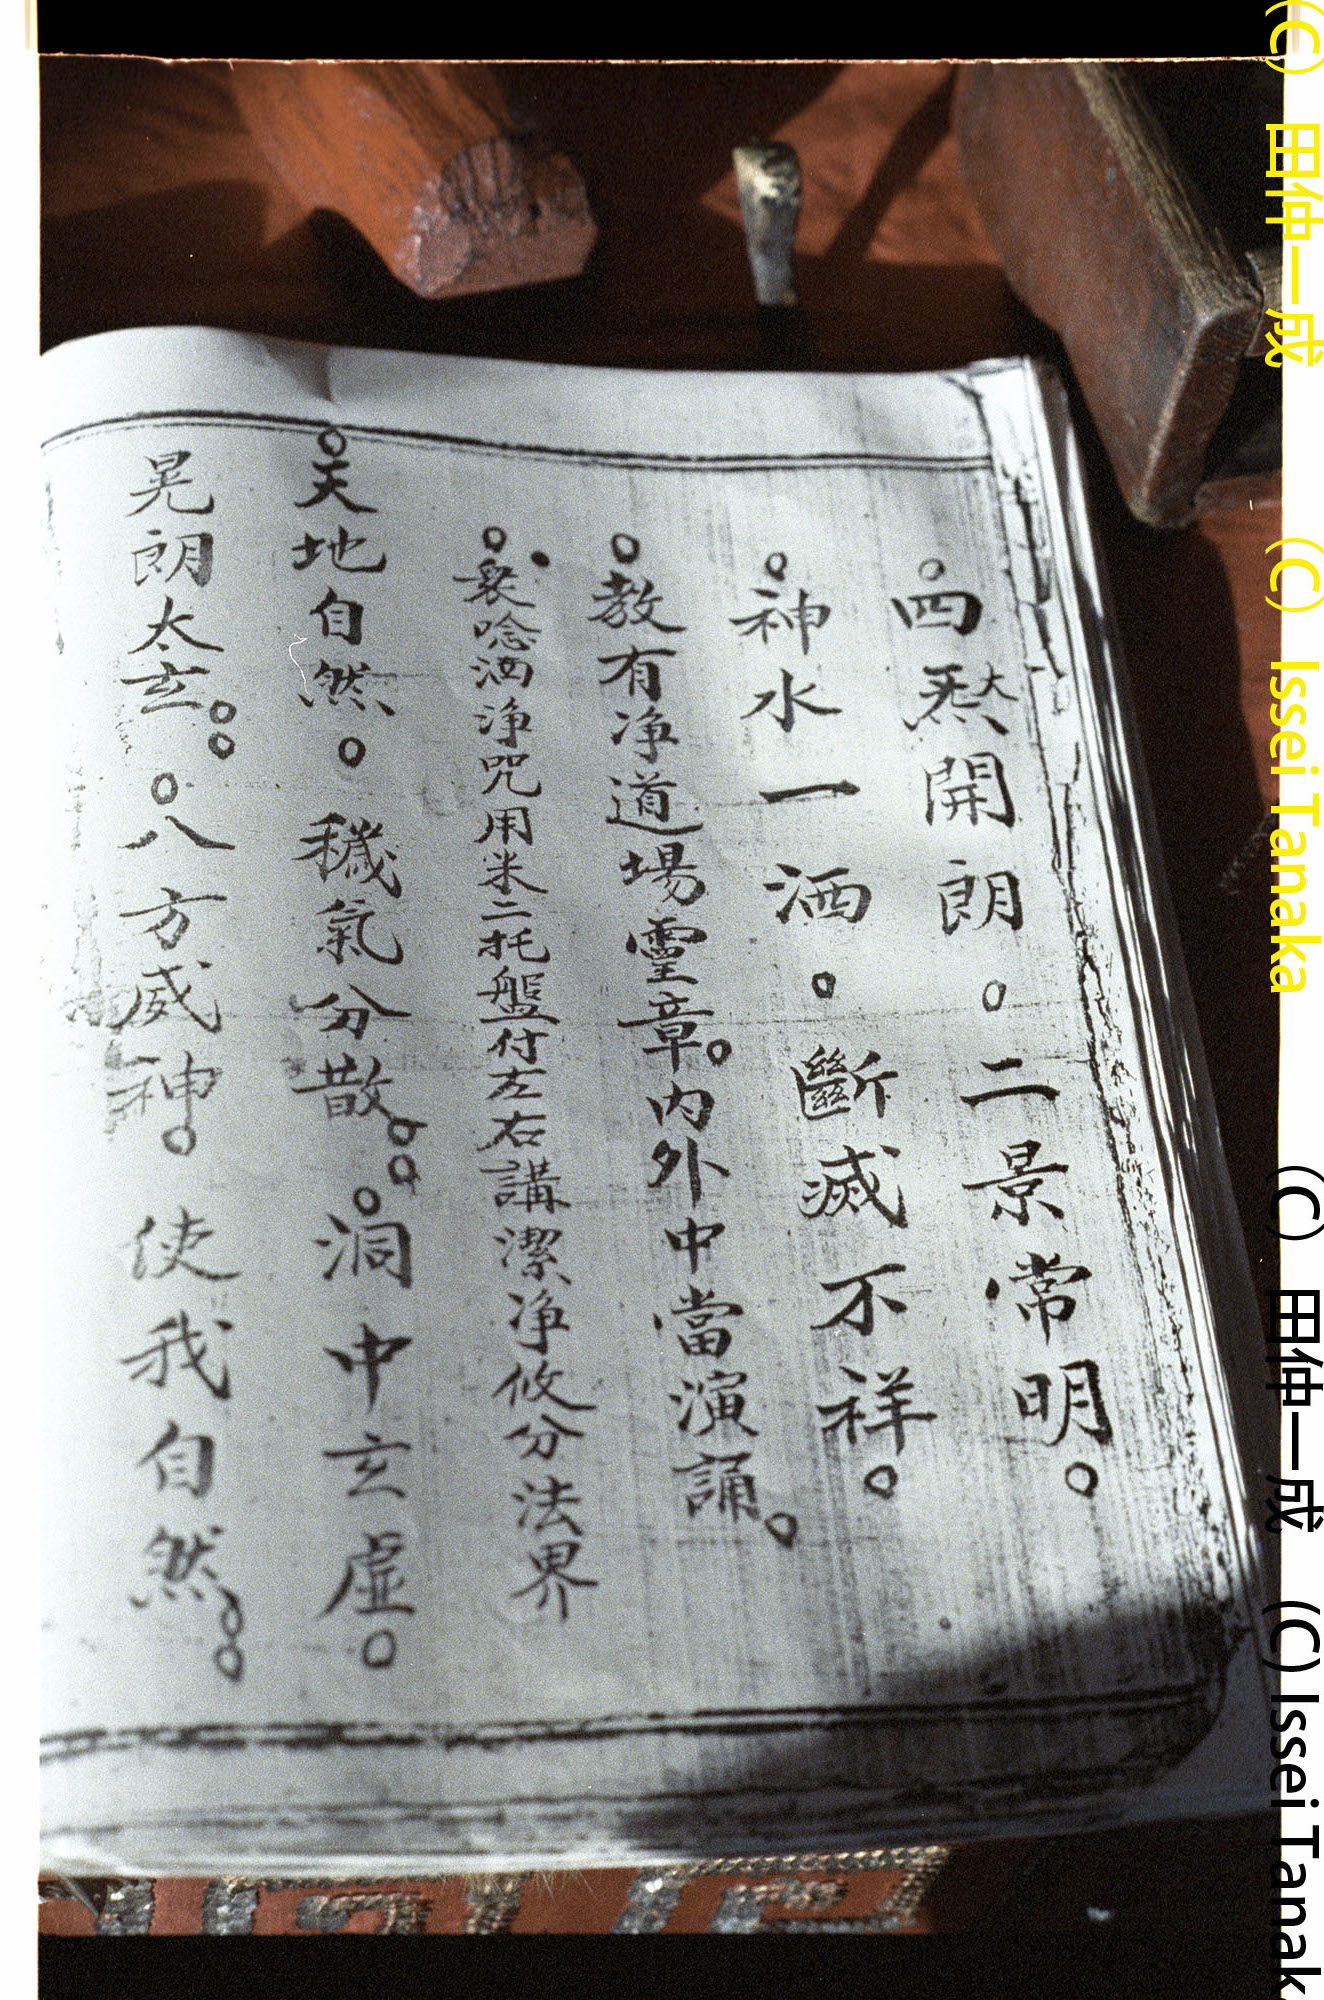 四炁開朗。二景常明。
神水一洒。斷滅不祥。
教有净道場靈章。内外中當演誦。
衆唸洒净咒用米二托盤付左右講潔净攸分法界
天地自然。穢氣分散。。洞中玄虛。
晃朗太玄。。八方威神。使我自然。。
(C) 田仲一成 (C) Issei Tanaka
(C) 田仲一成 (C) Issei Tanak